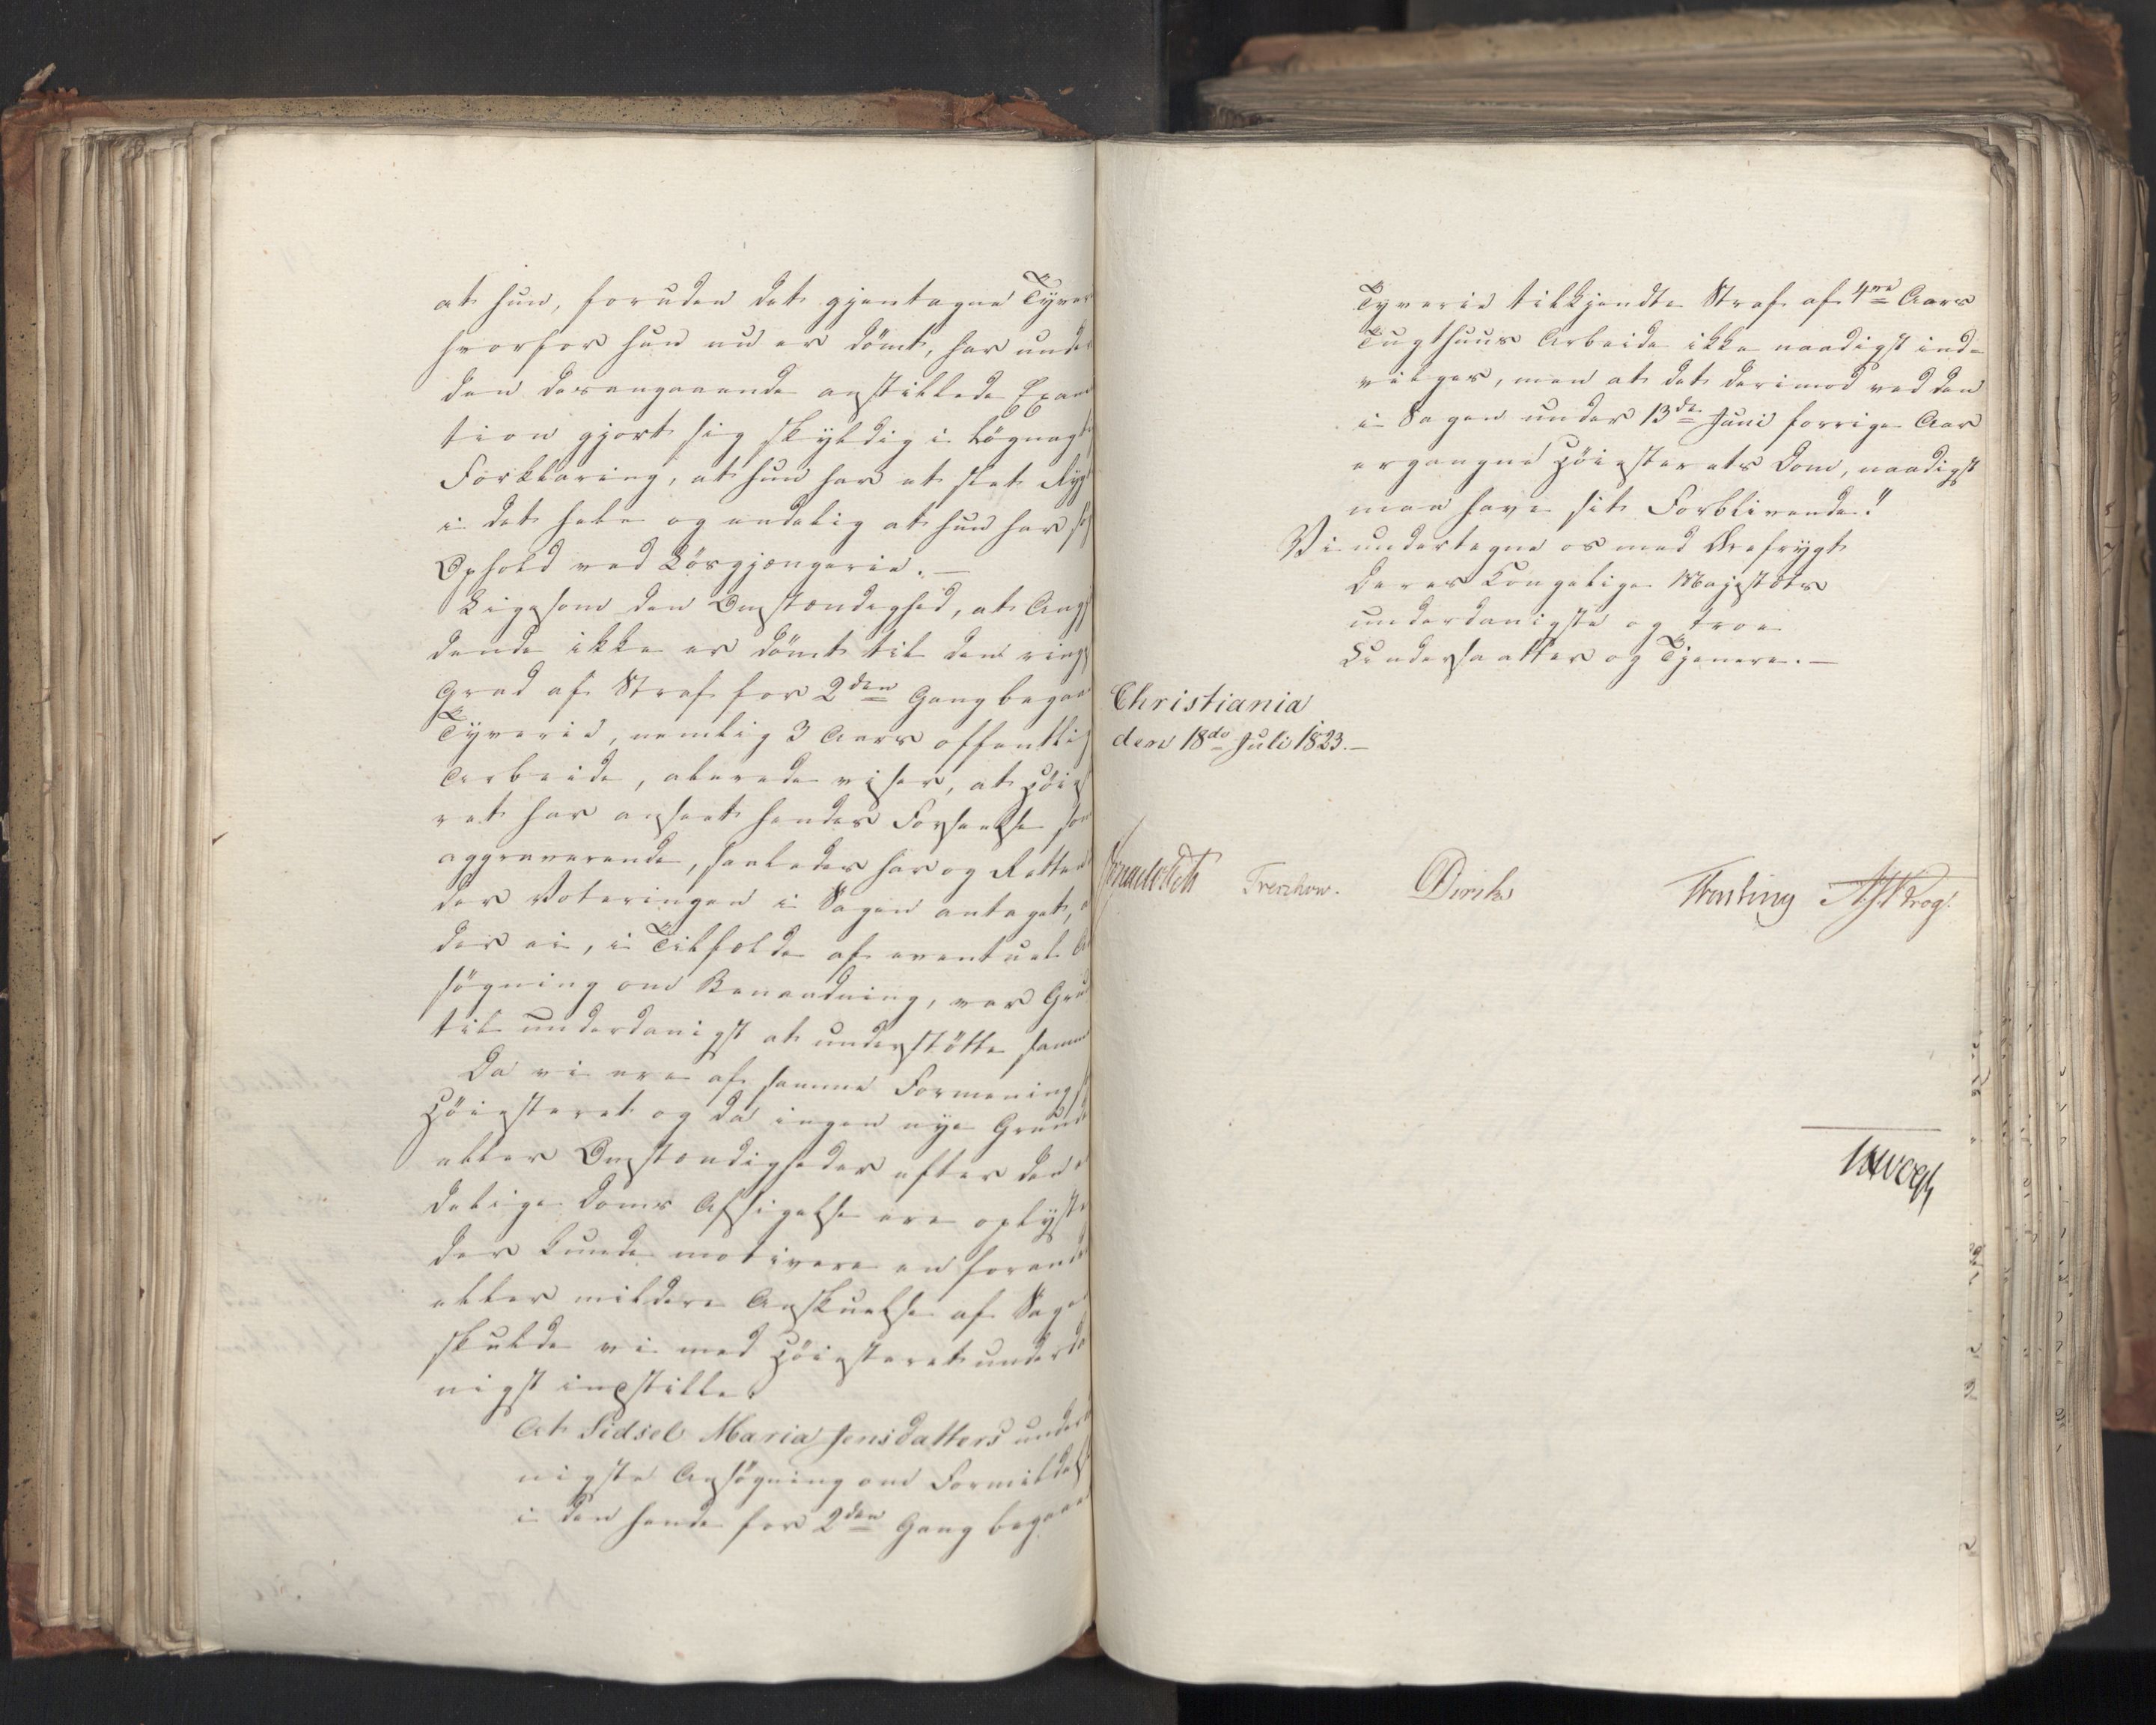 at hun, foruden det gjentagne Tyver
hvorfor hun nu er dömt, har under
den desangaaende anstillede Exam
tion gjort sig skyldig i lögnagti
Forklaring, at hun har et slet Ryg
i det hele og endelig at hun har sit
Ophold ved Lösgjængerie.—
Ligesom den Omstændighed, at Ang
dende ikke er dömt til den ring
Grad af Straf for 2den Gang begaa
Tyverie, nemlig 3 Aars offentlig
Arbeide, allerede viser, at Höi
ret har anseet hendes Forseelse som
aggraverende, saaledes har og Retten
der Voteringen i Sagen antaget,
der ei, i Tilfælde af eventuel A
søgning om Benaadning, var Grund
til underdanigst at understötte samme
Da vi ere af samme Formening
Höiesteret og da ingen nye Grunde
eller Omstændigheder efter den
delige Doms Afsigelse ere oplyste
der kunde motivere en forandr
eller mildere Anskuelse af Sage
skulde vi med Höiesteret underda
nigst indstille
At Sidsel Maria Jensdatters under
nigste Ansögning om Formildels
i den hende for 2den Gang begaae
Tyverie tilkjendte Straf af 4re Aars
Tugthuus Arbeide ikke naadigst ind-
vilges, men at det derimod ved den
i Sagen under 13de Juni forrige Aar
ergangne Höiesterets Dom, naadigst
maa have sit Forblivende."
Vi undertegne os med Ærefrygt
Deres Kongelige Majestæts
underdanigste og troe
Undersaatter og Tjenere.—
Christiania
den 18de Juli 1823.—
Treschow. Diriks Krog.